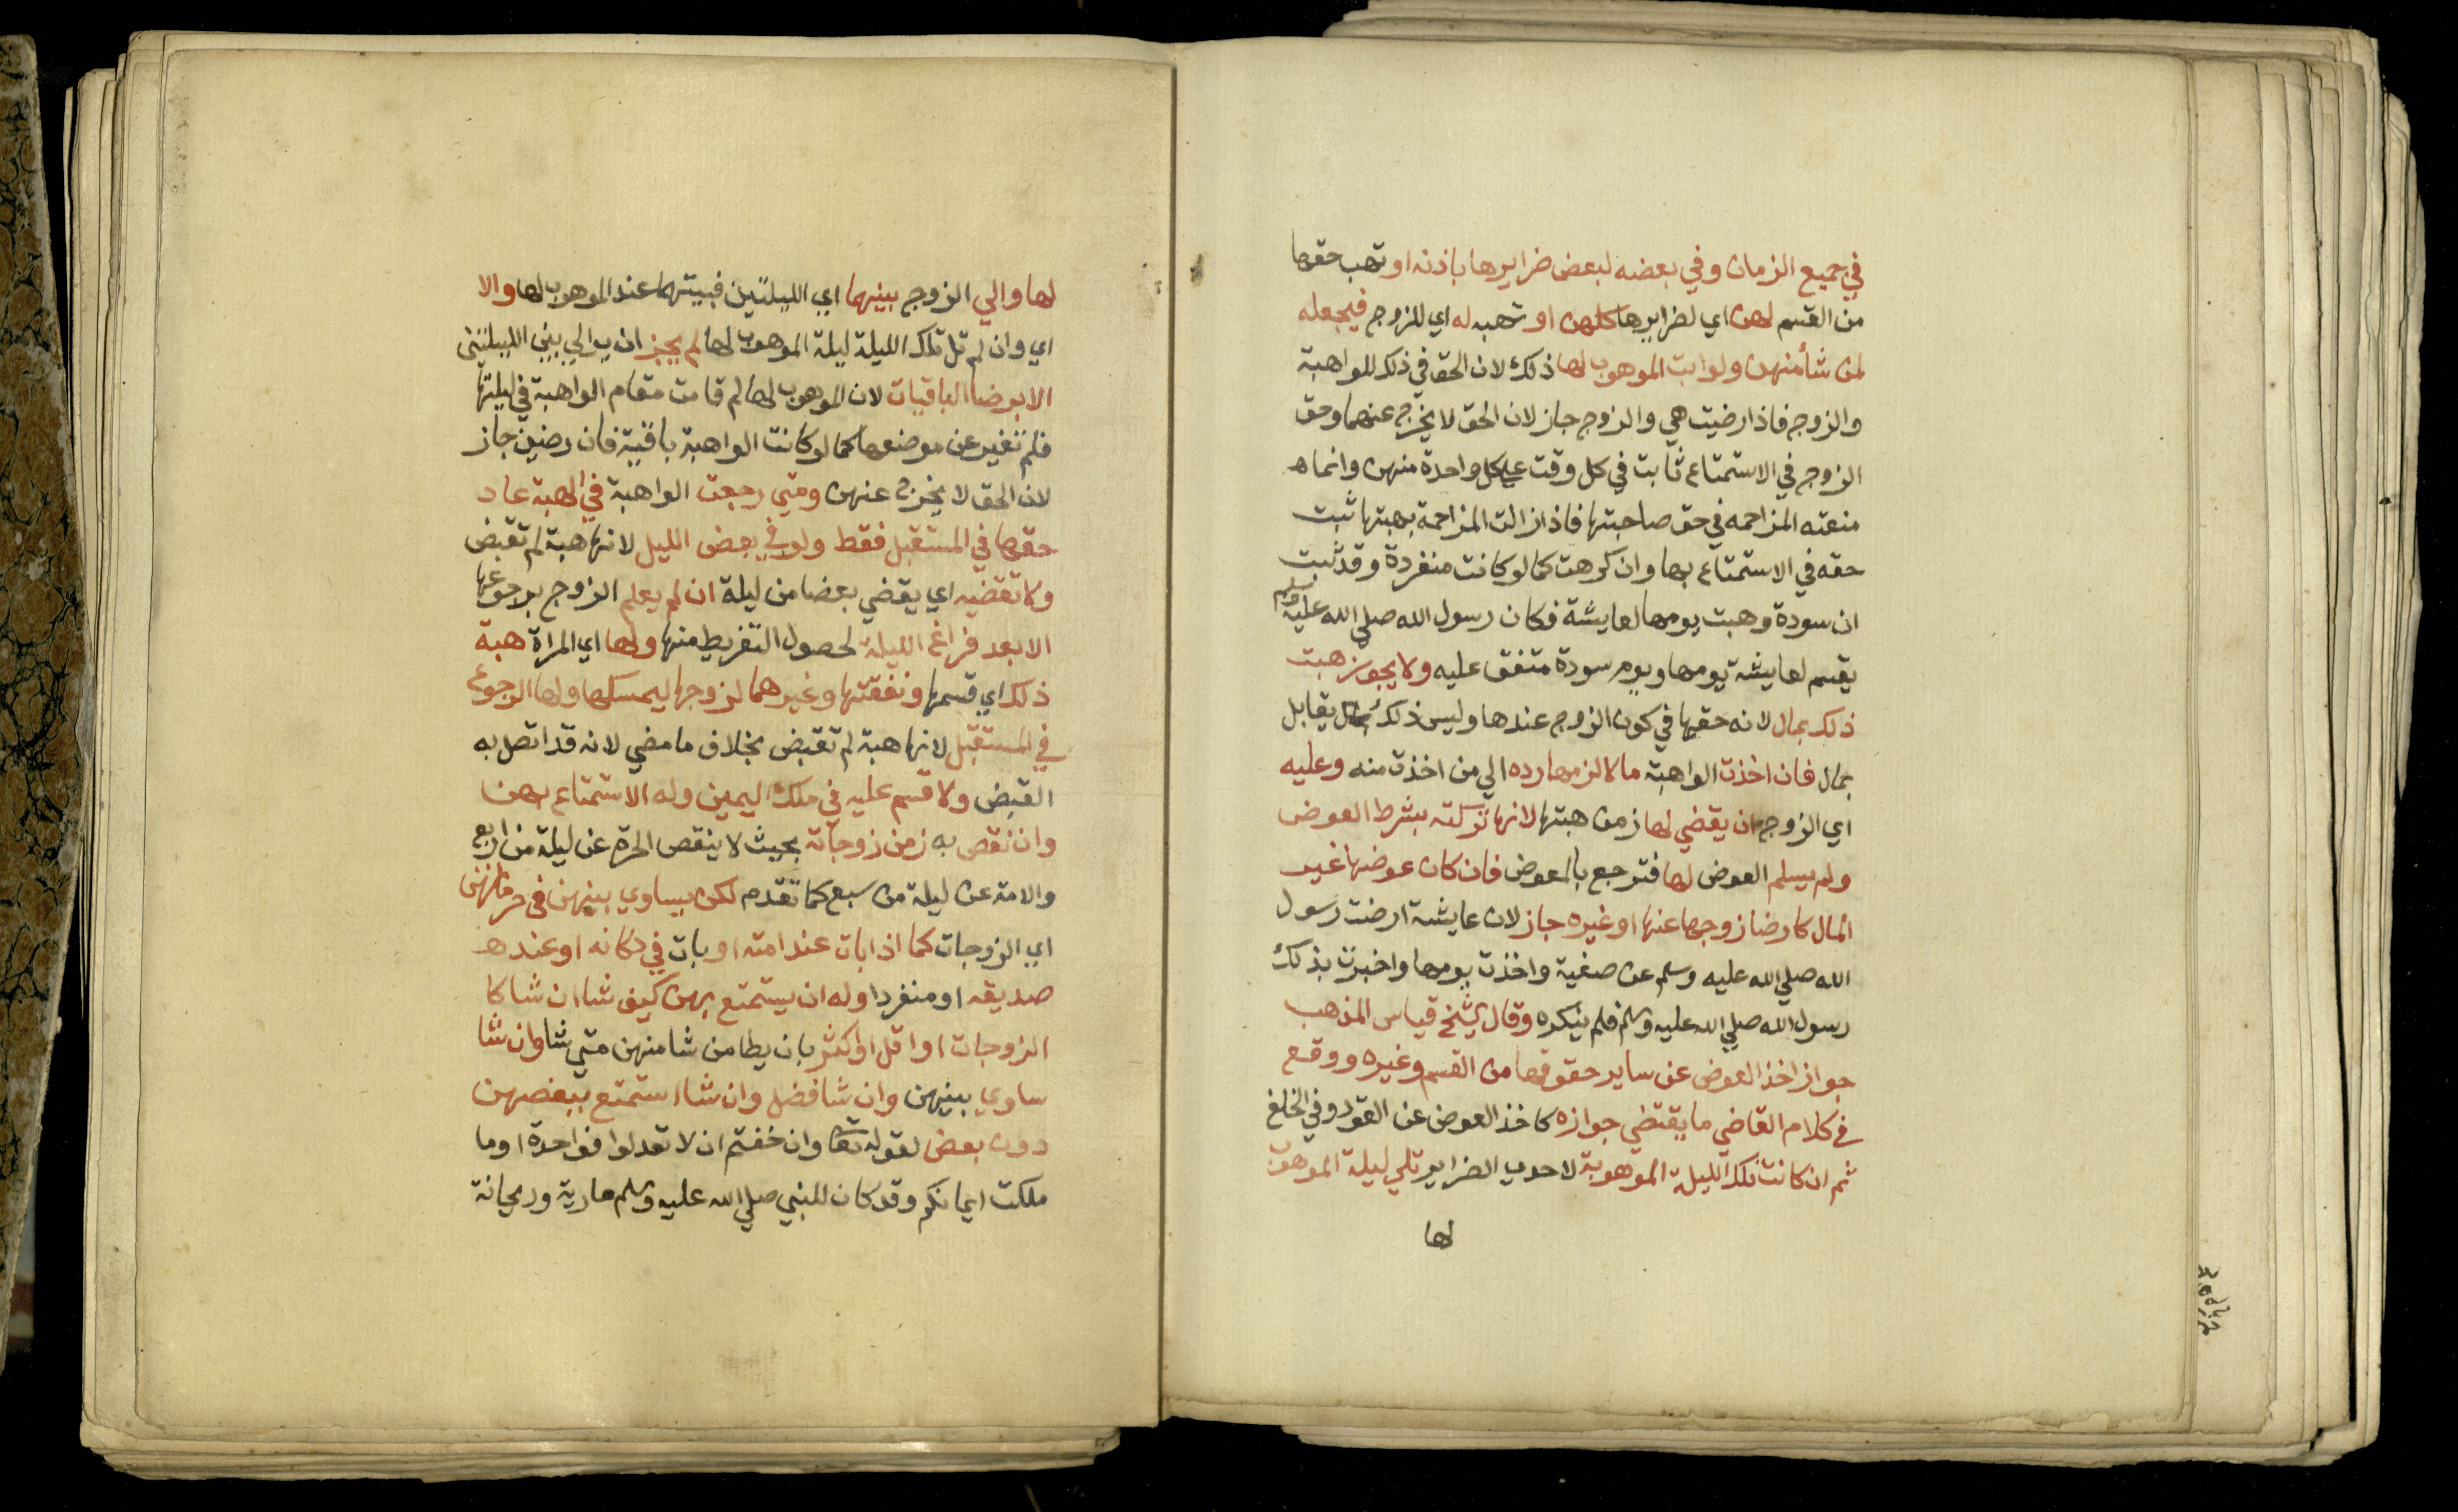 في جميع الزمان وفي بعضه لبعض ضرايرها باذنه او تهب حقها
من القسم لهن اي لضرايرها كلهن او تهبه له اي للزوج فيجعله
لمن شأ منهن ولو ابت الموهوب لها ذلك لان الحق في ذلك للواهبة
والزوج فاذا رضيت هي والزوج جاز لان الحق لا يخرج عنهما وحق
الزوج في الاستمتاع ثابت في كل وقت علي كل واحدة منهن وانما
منعته المزاحمه في حق صاحبتها فاذا زالت المزاحمة بهبتها ثبت
حقه في الاستمتاع بها وان كرهت كما لو كانت منفردة وقد ثبت
ان سودة وهبت يومها لعايشة فكان رسول الله صلي الله عليه وسلم
يقسم لعايشة يومها ويوم سودة متفق عليه ولا يجوز هبت
ذلك بمال لانه حقها في كون الزوج عندها وليس ذلك بمال يقابل
بمال فان اخذت الواهبة مالا لزمها رده الي من اخذت منه وعليه
اي الزوج ان يقضي لها زمن هبتها لانها تركته بشرط العوض
ولم يسلم العوض لها فترجع بالمعوض فان كان عوضها غير
المال كارضا زوجها عنها او غيره جاز لان عايشة ارضت رسول
الله صلي الله عليه وسلم عن صفية واخذت يومها واخبرت بذلك
رسول الله صلي الله عليه وسلم فلم ينكره وقال الشيخ قياس المذهب
جواز اخذ العوض عن ساير حقوقها من القسم وغيره ووقع
في كلام القاضي ما يقتضي جوازه كاخذ العوض عن القود وفي الخلع
ثم ان كانت تلك الليلة الموهوبة لاحدي الضراير تلي ليلة الموهوب
لها
لها والي الزوج بينهما اي الليلتين فبيتهما عند الموهوب لها والا
اي وان لم تل تلك الليلة ليلة الموهوب لها لم يجز ان يوالي بين الليلتين
الا برضا الباقيات لان الموهوب لها لم قامت مقام الواهبة في ليلتها
فلم تغير عن موضعها كما لو كانت الواهبة باقية فان رضين جاز
لان الحق لا يخرج عنهن ومتي رجعت الواهبة في الهبة عاد
حقها في المستقبل فقط ولو في بعض الليل لانها هبة لم تقبض
ولا تقضيه اي يقضي بعضا من ليلة ان لم يعلم الزوج برجوعها
الا بعد فراغ الليلة لحصول التفريط منها ولها اي المراة هبة
ذلك اي قسمها ونفقتها وغيرهما لزوجها ليمسكها ولها الرجوع
في المستقبل لانها هبة لم تقبض بخلاف ما مضي لانه قد اتصل به
القبض ولا قسم عليه في ملك اليمين وله الاستمتاع بهن
وان نقص به زمن زوجاته بحيث لا ينقص الحرة عن ليلة من اربع
والامة عن ليلة من سبع كما تقدم لكن يساوي بينهن في حرمانهن
اي الزوجات كما اذا بات عند امته او بات في دكانه او عند
صديقه او منفردا وله ان يستمتع بهن كيف شا ان شا كا
الزوجات او اقل او اكثر بان يطا من شا منهن متي شا وان شا
ساوي بينهن وان شا فضل وان شا استمتع ببعضهن
دون بعض لقوله تعا وان خفتم ان لا تعدلوا فواحدة او ما
ملكت ايمانكم وقد كان للنبي صلي الله عليه وسلم مارية وريحانة